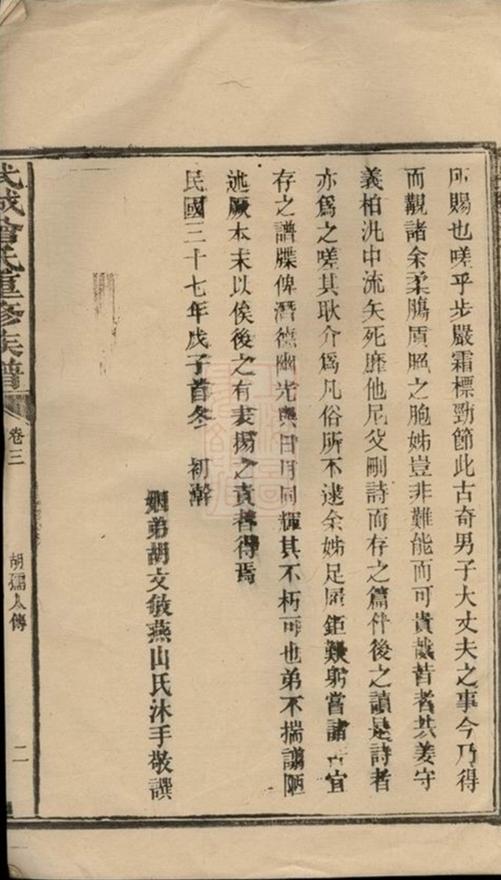 所賜也嗟乎步嚴霜標勁節此古奇男子大丈夫之事今乃得
而覯諸余柔腸質脆之胞姊豈非難能而可貴哉昔者共姜守
義柏汎中流矢死靡他尼父刪詩而存之篇什後之讀是詩者
亦爲之嗟其耿介爲凡俗所不逮余姊足履鉅艱躬嘗諸宜
存之譜牒俾潛德幽光與日月同輝其不朽可也弟不揣譾陋
述厥本末以俟後之有表揚之責者得焉
民國三十七年戊子首冬 初澣
姻弟胡文敏燕山氏沐手敬譔
武城曾氏重修族譜
卷三
胡孺人傳
二